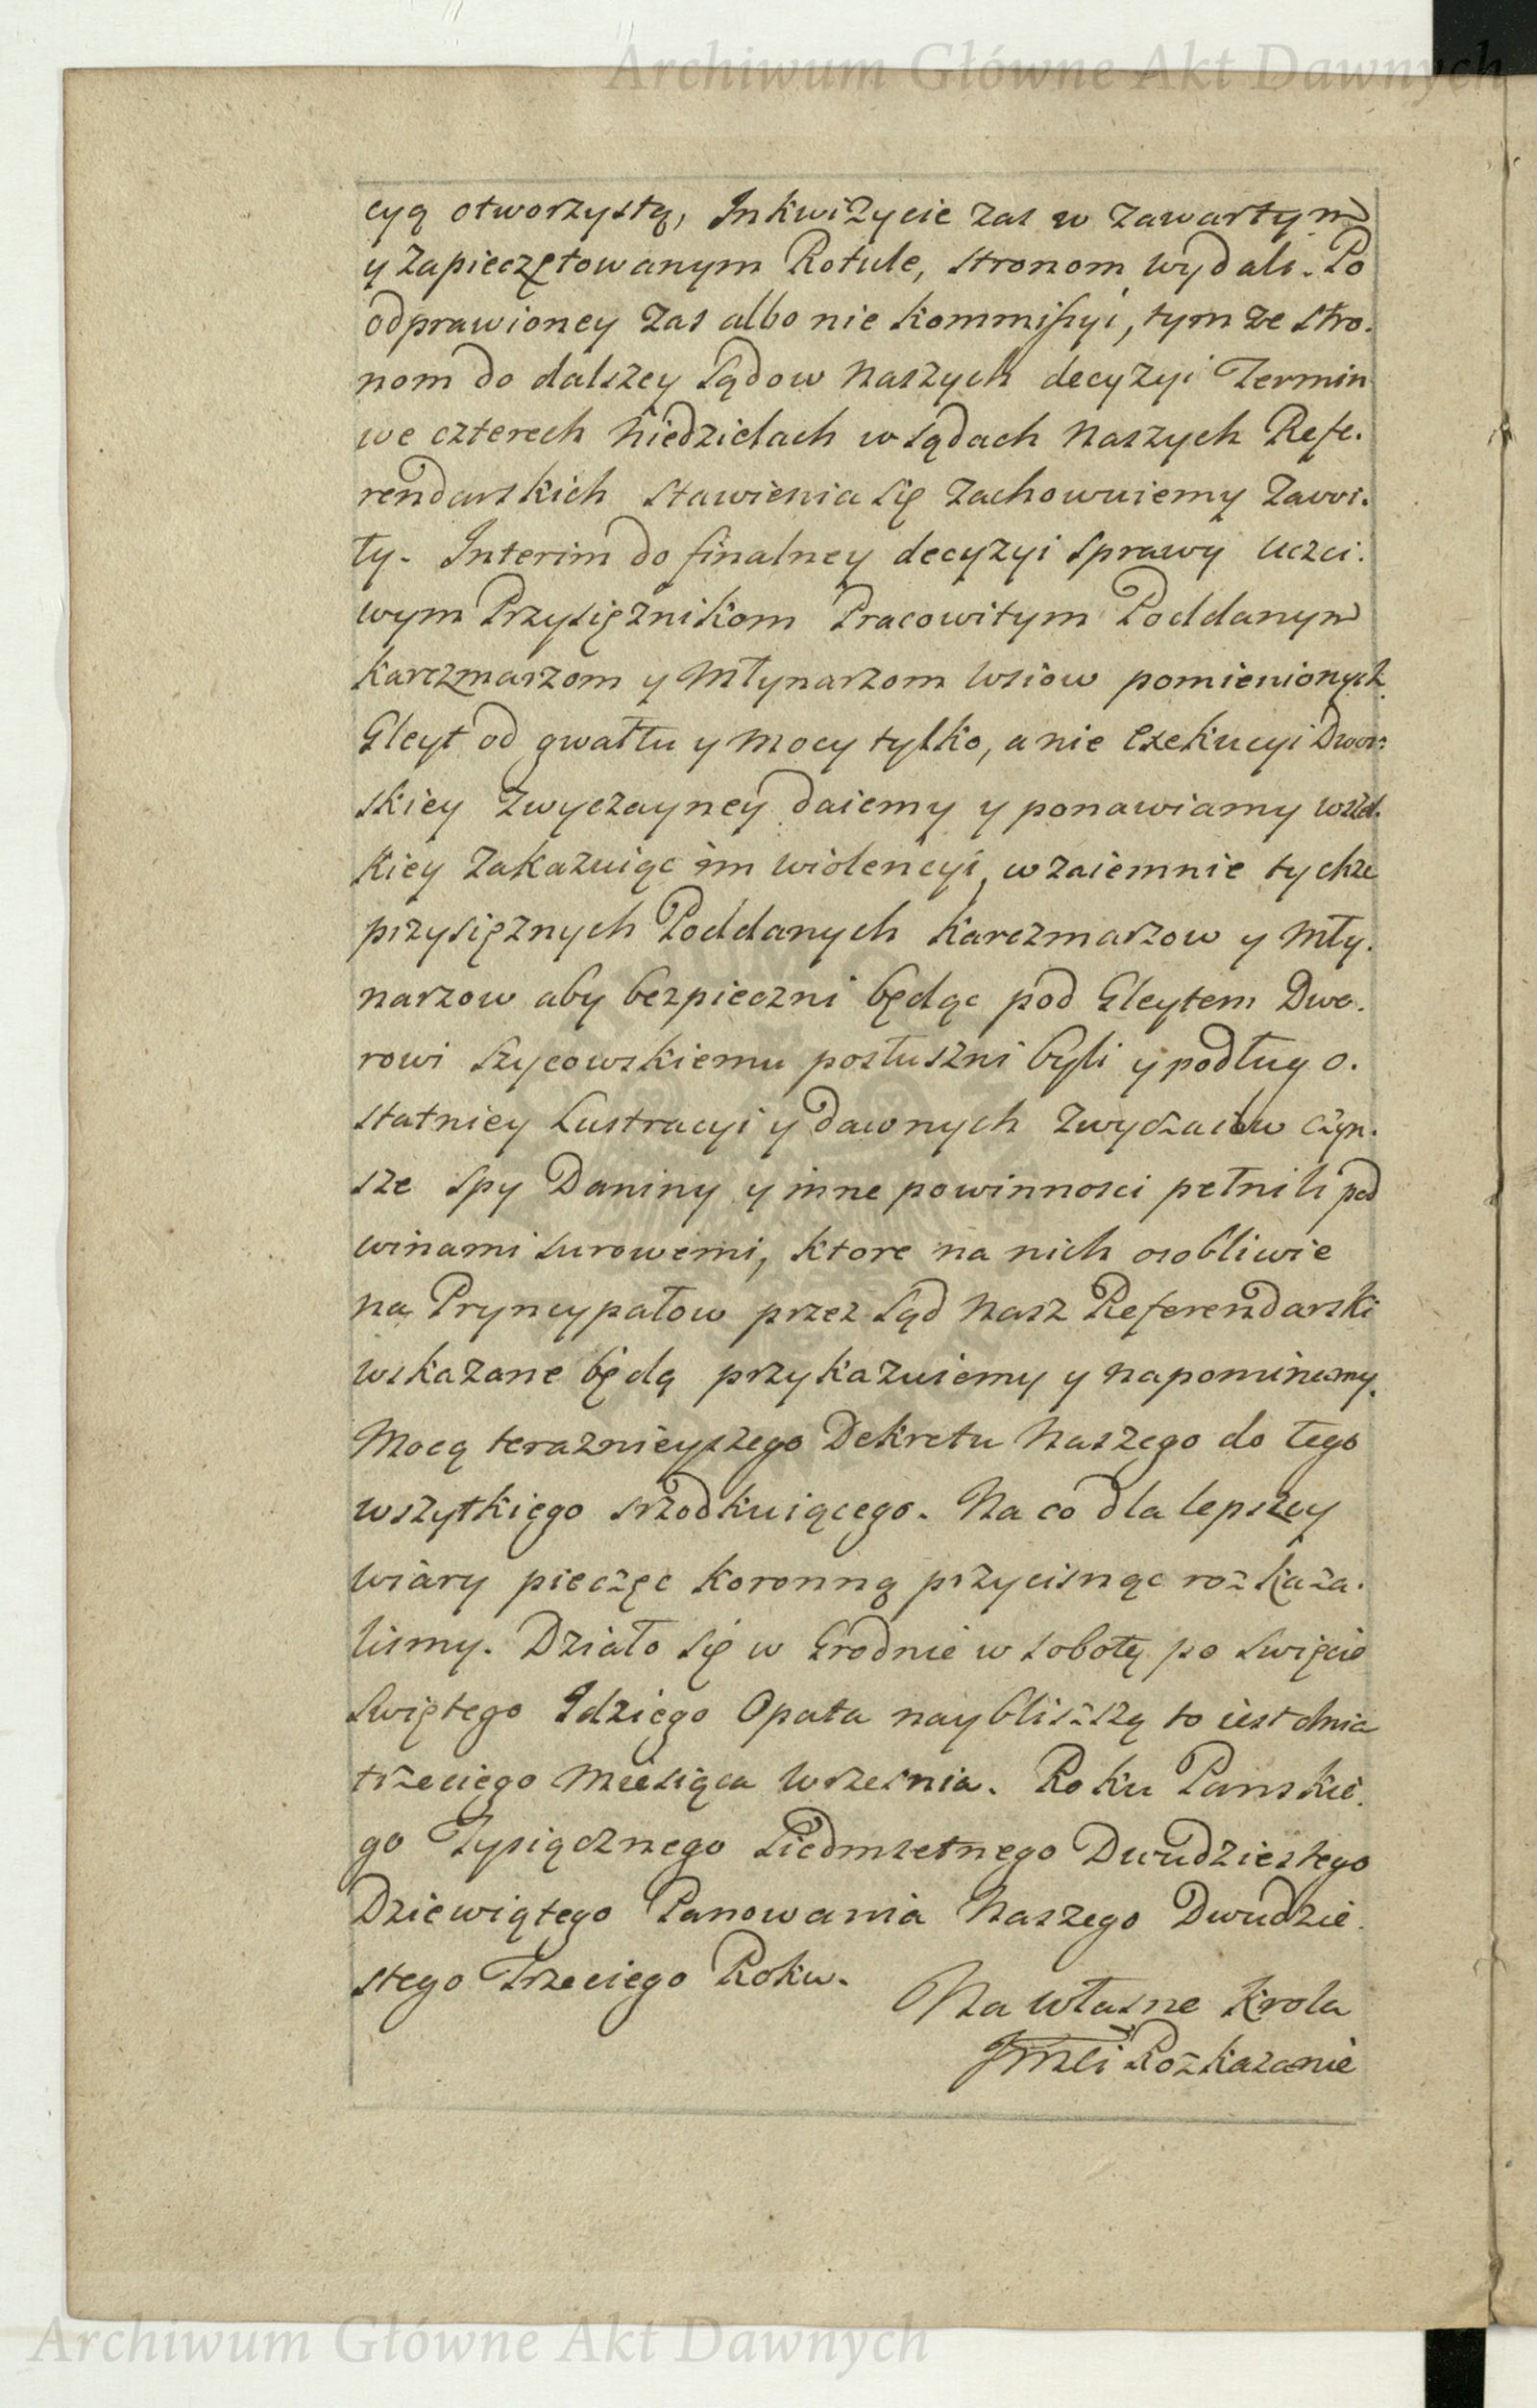 Archiwum Główne Akt Dawnych
cyą otworzystą, Inkwizycie zas w zawartym
y zapieczętowanym Rotule, stronom wydali. Po
odprawioney zas albo nie kommissyi, tym ze stro.
nom do dalszey sądow Naszych decyzyi Termin
we czterech Niedzielach w sądach Naszych Refe.
rendarskich stawienia się zachowuiemy zawi.
ty. Interim do finalney decyzyi sprawy Uczci.
wym Przysiężnikom Pracowitym Poddanym
karczmarzom y Młynarzom Wsiow pomienionych
Gleyt od gwałtu y mocy tylko, a nie Exekucyi Dwor:
skiey zwyczayney daiemy y ponawiamy wszel.
kiey zakazuiąc im wiolencyi, wzaiemnie tychze
przysięznych Poddanych karczmarzow y Mły.
narzow aby bezpieczni będąc pod Gleytem Dwo.
rowi Szycowskiemu posłuszni byli y podług o.
statniey Lustracyi y dawnych zwyczaiow czyn.
sze spy Daniny y inne powinnosci pełnili pod
winami surowemi, ktore na nich osobliwie
na Pryncypałow przez sąd Nasz Referendarski
wskazane będą przykazuiemy y napominamy.
Mocą teraznieyszego Dekretu Naszego do tego
wszytkiego srzodkuiącego. Na co dla lepszey
wiary pieczęc koronną przycisnąc rozkaza.
lismy. Działo się w Grodnie w sobotę po swięcie
Swiętego Idziego Opata nayblizszą to iest dnia
trzeciego Miesiąca Wrzesnia. Roku Panskie.
go Tysiącznego Siedmsetnego Dwudziestego
Dziewiątego Panowania Naszego Dwudzie.
stego Trzeciego Roku.
Na własne Krola
Jmsci Rozkazanie
Archiwum Główne Akt Dawnych